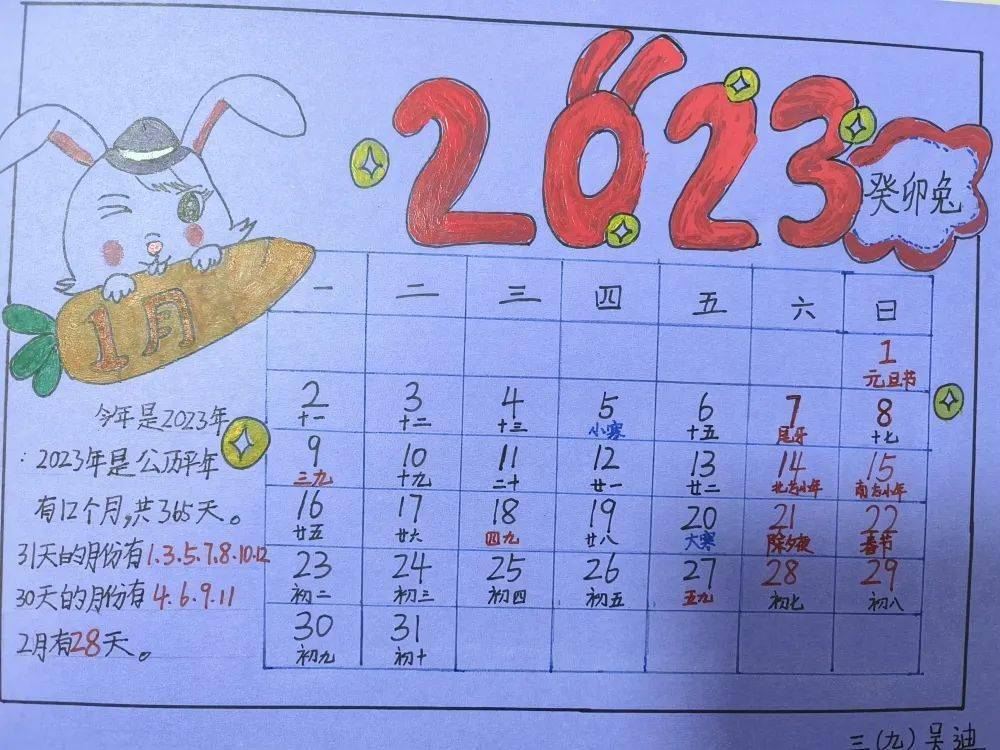 2023
癸卯兔
1月
一 二 三 四 五 六 日
1
元旦节
2 3 4 5 6 7 8
十一 十二 十三 小寒 十五 尾牙 十七
9 10 11 12 13 14 15
三九 十九 二十 廿一 廿二 北方小年 南方小年
16 17 18 19 20 21 22
廿五 廿六 四九 廿八 大寒 除夕夜 春节
23 24 25 26 27 28 29
初二 初三 初四 初五 五九 初七 初八
30 31
初九 初十
今年是2023年
2023年是公历平年
有12个月,共365天。
31天的月份有1.3.5.7.8.10.12
30天的月份有4.6.9.11
2月有28天。
三(九)吴迪